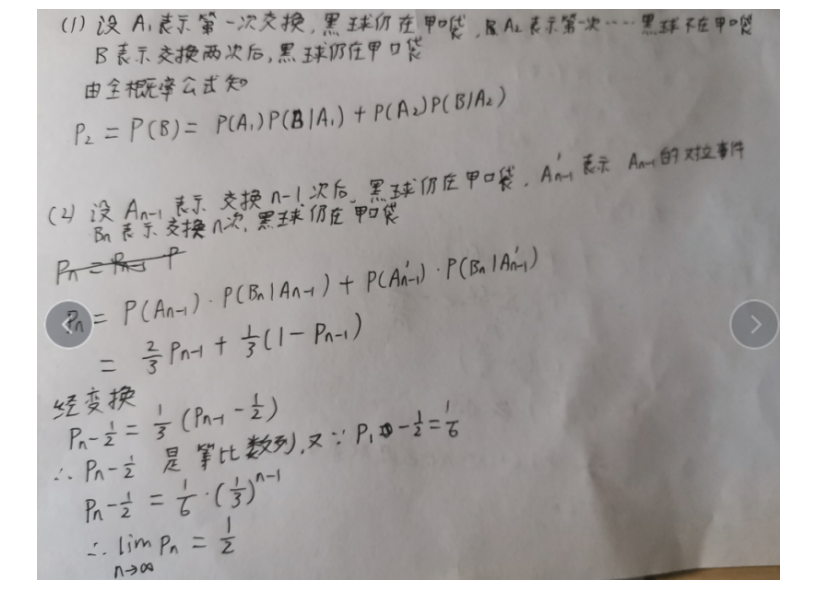 (1) 设 A₁表示第一次交换,黑球仍在甲口袋,A₂表示第一次……黑球不在甲口袋
B表示交换两次后,黑球仍在甲口袋
由全概率公式知
P₂ = P(B) = P(A₁)P(B|A₁) + P(A₂)P(B|A₂)
(2) 设 Aₙ₋₁ 表示 交换 n-1 次后,黑球仍在甲口袋,A'ₙ₋₁ 表示 Aₙ₋₁ 的对立事件
Bₙ 表示 交换n次,黑球仍在甲口袋
Pₙ = Pₙ₋₁ P
Pₙ = P(Aₙ₋₁)·P(Bₙ|Aₙ₋₁) + P(A'ₙ₋₁)·P(Bₙ|A'ₙ₋₁)
= 2/3 Pₙ₋₁ + 1/3(1-Pₙ₋₁)
经变换
Pₙ-1/2 = 1/3(Pₙ₋₁-1/2)
∴ Pₙ-1/2 是等比数列,又∵ P₁-1/2=1/6
Pₙ-1/2 = 1/6·(1/3)ⁿ⁻¹
∴ lim Pₙ = 1/2
n→∞